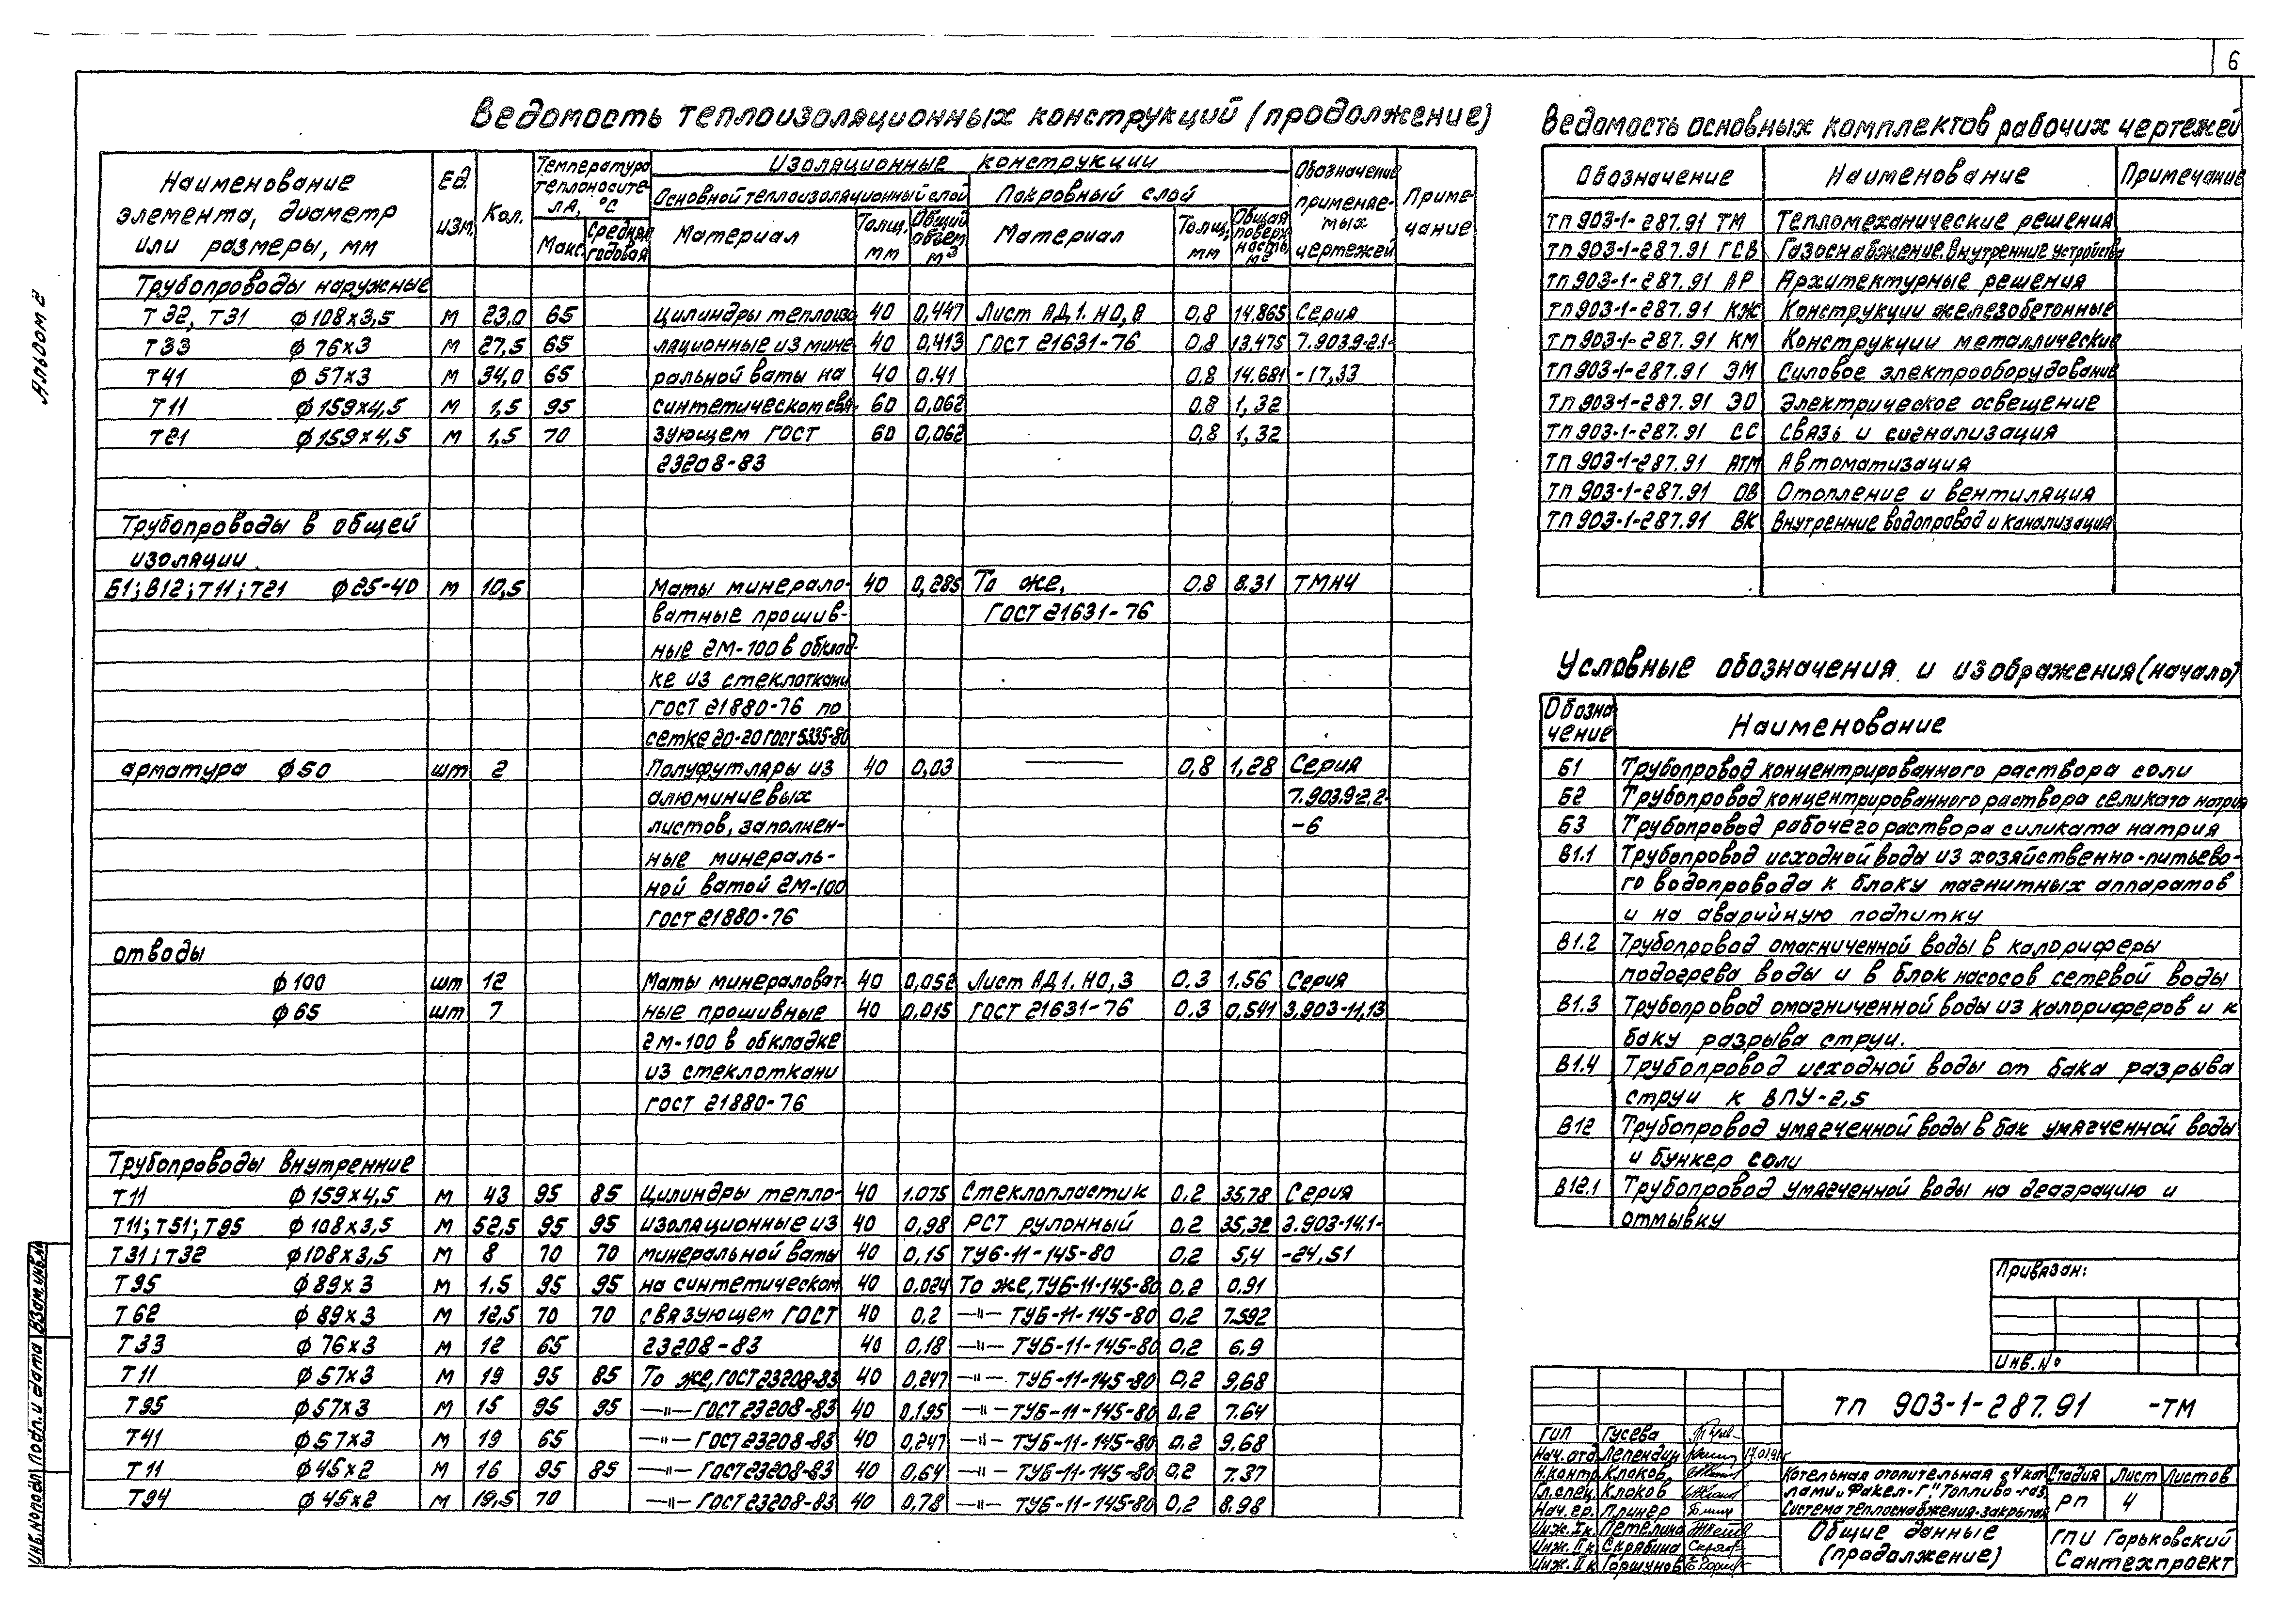 6
Альбом 2
Ведомость теплоизоляционных конструкций (продолжение)
Наименование элемента, диаметр или размеры, мм | Ед. изм. | Кол. | Температура теплоносителя, °С | Изоляционные конструкции | Обозначение применяемых чертежей | Примечание
Макс. | Средняя годовая | Основной теплоизоляционный слой | Покровный слой
Материал | Толщ, мм | Общий объем м3 | Материал | Толщ, мм | Общая поверхность, м2
Трубопроводы наружные
Т32, Т31 ф108х3,5 м 23,0 65 цилиндры теплоизо 40 0,447 Лист АД1.Н0,8 0,8 14.865 Серия
Т33 ф76х3 м 27,5 65 ляционные из мине 40 0,413 ГОСТ 21631-76 0,8 13,475 7.903.9-2.1-
Т41 ф57х3 м 34,0 65 ральной ваты на 40 0.41 0.8 14.681 -17,33
Т11 ф159х4,5 м 1,5 95 синтетическом свя- 60 0,062 0.8 1,32
Т21 ф159х4,5 м 1,5 70 зующем ГОСТ 60 0,062 0,8 1,32
23208-83
Трубопроводы в общей
изоляции.
Б1; В12; Т11; Т21 ф25-40 м 10,5 Маты минерало- 40 0,285 То же, 0.8 8.31 ТМН4
ватные прошив- ГОСТ 21631-76
ные 2М-100 в обклад-
ке из стеклоткани
ГОСТ 21880-76 по
сетке 20-20 ГОСТ 5335-80
арматура ф50 шт 2 Полуфутляры из 40 0,03 — 0,8 1,28 Серия
алюминиевых 7.903.9-2.2-
листов, заполнен- -6
ные минераль-
ной ватой 2М-100
ГОСТ 21880-76
отводы
ф100 шт 12 Маты минераловат- 40 0,052 Лист АД1.Н0,3 0.3 1.56 Серия
ф65 шт 7 ные прошивные 40 0.015 ГОСТ 21631-76 0.3 0,541 3.903-11,13
2М-100 в обкладке
из стеклоткани
ГОСТ 21880-76
Трубопроводы внутренние
Т11 ф159х4,5 м 43 95 85 Цилиндры тепло- 40 1.075 Стеклопластик 0,2 35,78 Серия
Т11; Т51; Т95 ф108х3,5 м 52,5 95 95 изоляционные из 40 0,98 РСТ рулонный 0,2 35,32 3.903-14.1-
Т31; Т32 ф108х3,5 м 8 70 70 минеральной ваты 40 0,15 ТУ6-11-145-80 0,2 5,4 -24,51
Т95 ф89х3 м 1.5 95 95 на синтетическом 40 0.024 То же, ТУ6-11-145-80 0,2 0.91
Т62 ф89х3 м 12,5 70 70 связующем ГОСТ 40 0,2 —"— ТУ6-11-145-80 0,2 7.592
Т33 ф76х3 м 12 65 23208-83 40 0,18 —"— ТУ6-11-145-80 0,2 6,9
Т11 ф57х3 м 19 95 85 То же, ГОСТ 23208-83 40 0,247 —"— ТУ6-11-145-80 0,2 9,68
Т95 ф57х3 м 15 95 95 —"— ГОСТ 23208-83 40 0.195 —"— ТУ6-11-145-80 0.2 7.64
Т41 ф57х3 м 19 65 —"— ГОСТ 23208-83 40 0,247 —"— ТУ6-11-145-80 0.2 9.68
Т11 ф45х2 м 16 95 85 —"— ГОСТ 23208-83 40 0,64 —"— ТУ6-11-145-80 0,2 7.37
Т94 ф45х2 м 19,5 70 —"— ГОСТ 23208-83 40 0,78 —"— ТУ6-11-145-80 0,2 8.98
Ведомость основных комплектов рабочих чертежей
Обозначение | Наименование | Примечание
ТП 903-1-287.91 ТМ Тепломеханические решения
ТП 903-1-287.91 ГСВ Газоснабжение. Внутренние устройства
ТП 903-1-287.91 АР Архитектурные решения
ТП 903-1-287.91 КЖ Конструкции железобетонные
ТП 903-1-287.91 КМ Конструкции металлические
ТП 903-1-287.91 ЭМ Силовое электрооборудование
ТП 903-1-287.91 ЭО Электрическое освещение
ТП 903-1-287.91 СС Связь и сигнализация
ТП 903-1-287.91 АТМ Автоматизация
ТП 903-1-287.91 ОВ Отопление и вентиляция
ТП 903-1-287.91 ВК Внутренние водопровод и канализация
Условные обозначения и изображения (начало)
Обозначение | Наименование
Б1 Трубопровод концентрированного раствора соли
Б2 Трубопровод концентрированного раствора селиката натрия
Б3 Трубопровод рабочего раствора силиката натрия
В1.1 Трубопровод исходной воды из хозяйственно-питьево-
го водопровода к блоку магнитных аппаратов
и на аварийную подпитку
В1.2 Трубопровод омагниченной воды в калориферы
подогрева воды и в блок насосов сетевой воды
В1.3 Трубопровод омагниченной воды из калориферов и к
баку разрыва струи.
В1.4 Трубопровод исходной воды от бака разрыва
струи к ВПУ-2,5
В12 Трубопровод умягченной воды в бак умягченной воды
и бункер соли
В12.1 Трубопровод умягченной воды на деаэрацию и
отмывку
Привязан:
Инв. №
ТП 903-1-287.91 -ТМ
ГИП Гусева
Нач. отд. Лепендин 17.01.91г
Н.контр. Клоков
Гл.спец. Клоков
Нач. гр. Плинер
Инж. I к. Петелина
Инж. II к. Скрябина
Инж. II к. Горшунов
Котельная отопительная с 4 кот-
лами „Факел-Г". Топливо-газ
Система теплоснабжения-закрытая
Стадия Лист Листов
РП 4
Общие данные
(продолжение)
ГПИ Горьковский
Сантехпроект
Инв. № подл. Подп. и дата Взам. инв. №